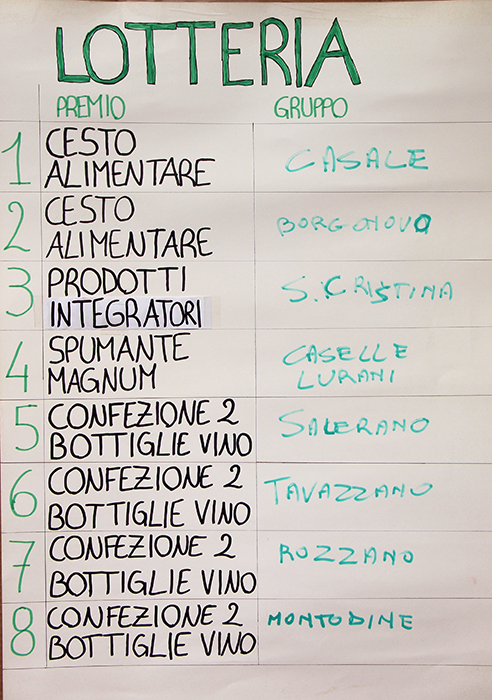 LOTTERIA
PREMIO GRUPPO
1 CESTO ALIMENTARE CASALE
2 CESTO ALIMENTARE BORGONOVO
3 PRODOTTI INTEGRATORI S. CRISTINA
4 SPUMANTE MAGNUM CASELLE LURANI
5 CONFEZIONE 2 BOTTIGLIE VINO SALERANO
6 CONFEZIONE 2 BOTTIGLIE VINO TAVAZZANO
7 CONFEZIONE 2 BOTTIGLIE VINO ROZZANO
8 CONFEZIONE 2 BOTTIGLIE VINO MONTODINE